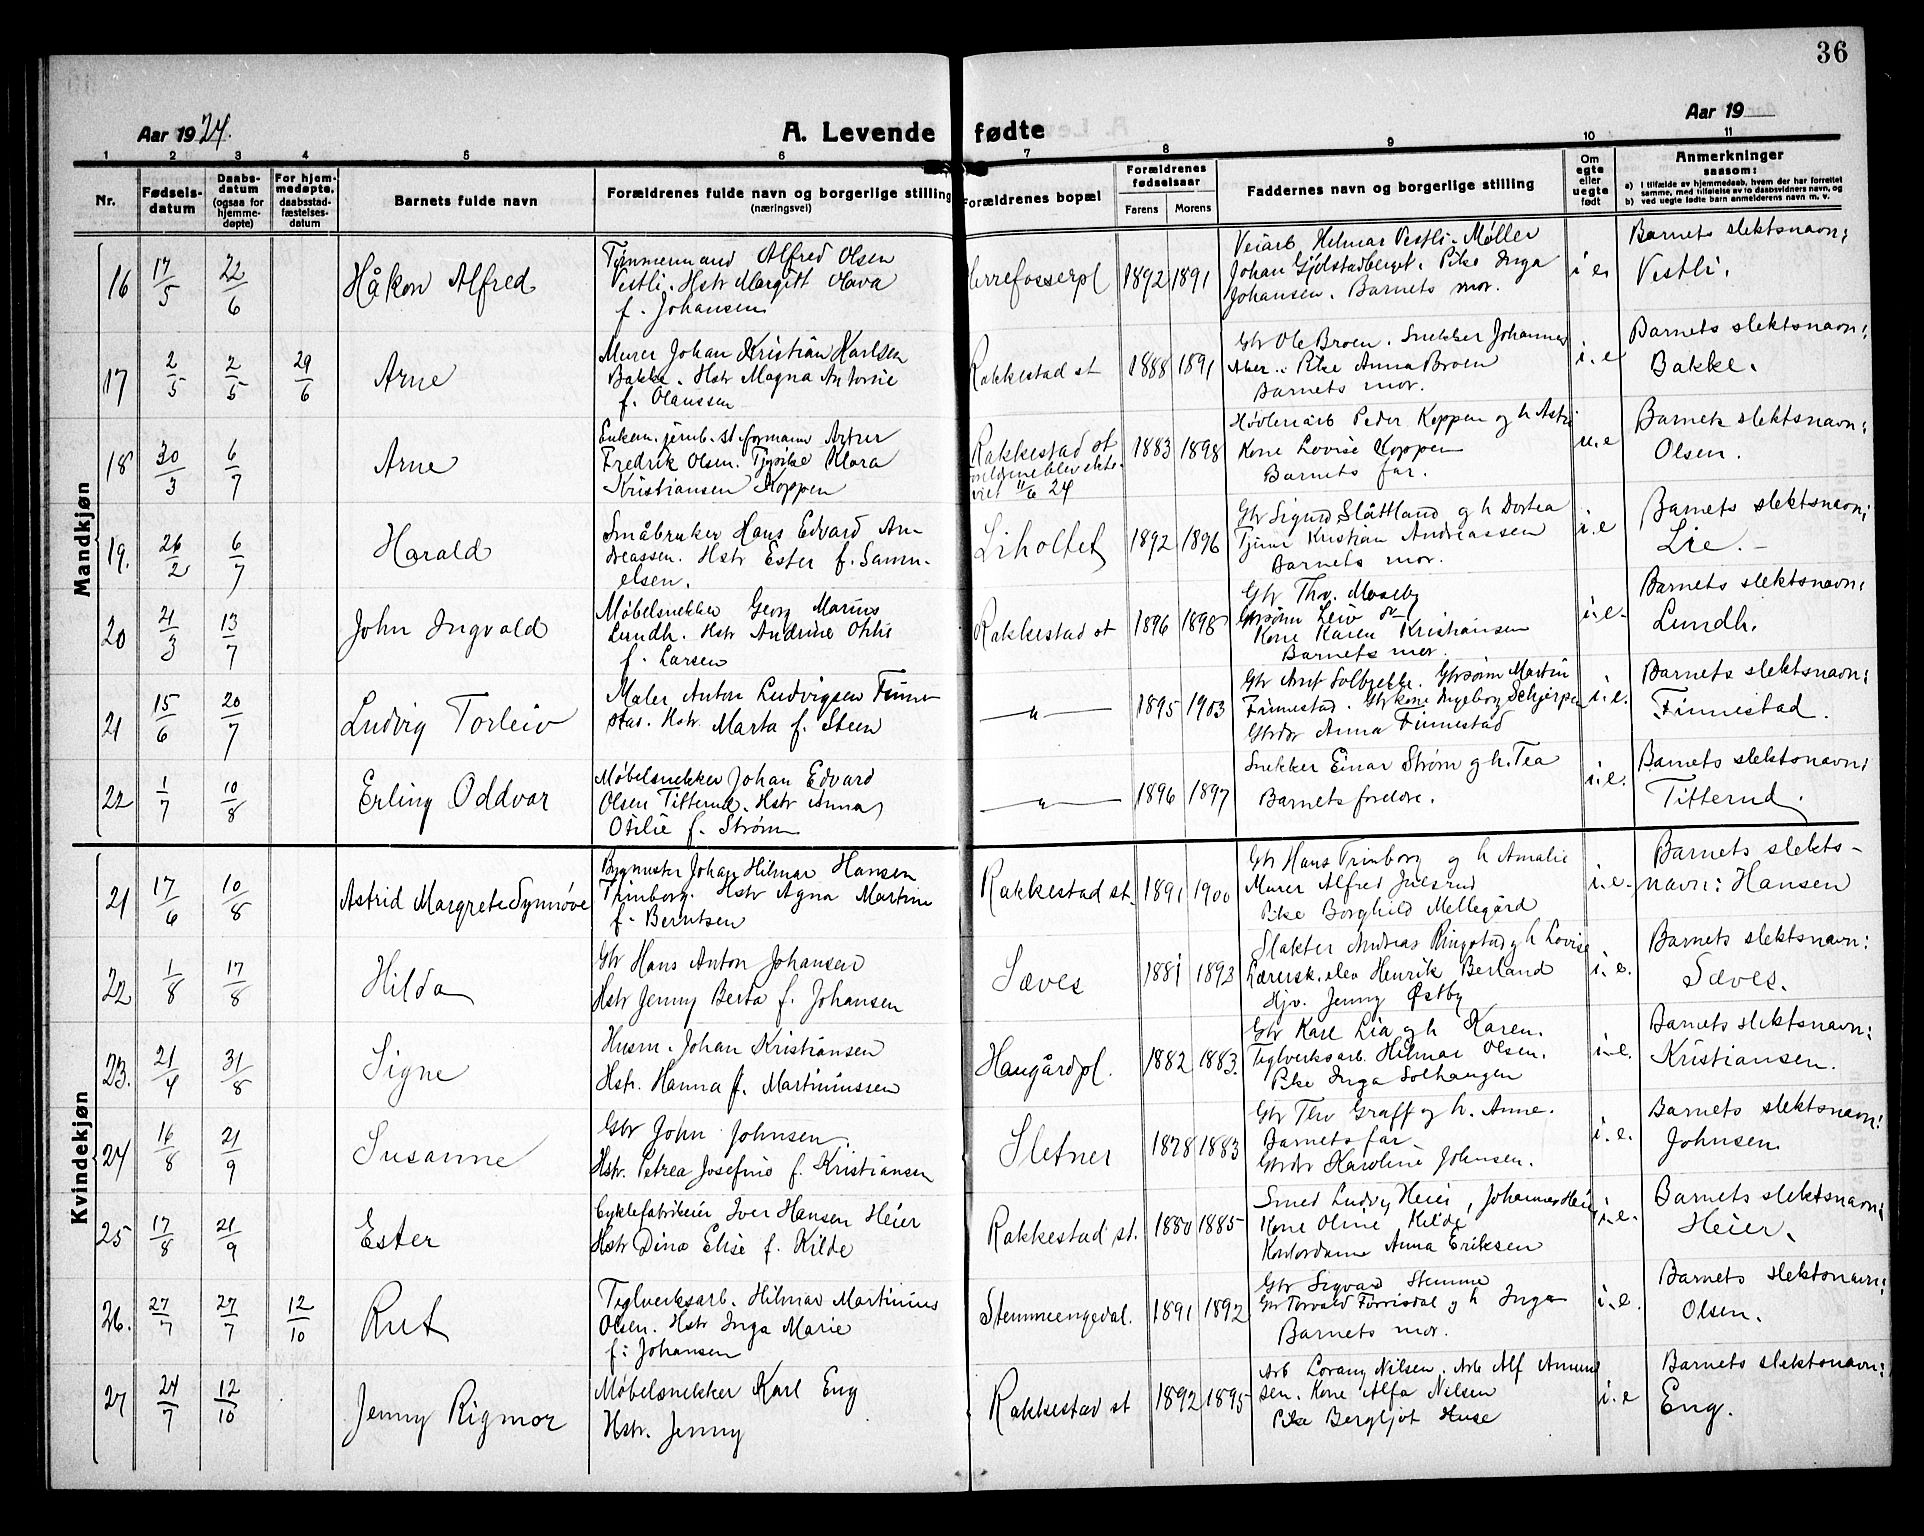 36
Aar 1924.
A. Levende fødte
Aar 19
1 2 3 4 5 6 7 8 9 10 11
Nr.
Fødselsdatum
Daabsdatum (ogsaa for hjemmedøpte)
For hjemmedøpte, daabsstadfæstelsesdatum
Barnets fulde navn
Forældrenes fulde navn og borgerlige stilling
(næringsvei)
Forældrenes bopæl
Forældrenes fødselsaar
Farens Morens
Faddernes navn og borgerlige stilling
Om egte eller uegte født
Anmerkninger
saasom:
a) i tilfælde av hjemmedaab, hvem der har forrettet samme, med tilføielse av to daabsvidners navn, og
b) ved uegte fødte barn anmelderens navn m. v.
Mandkjøn
16 17/5 22/6 Håkon Alfred
Tømmermand Alfred Olsen
Vestli. Hstr Margitt Olava
f. Johansen
1892 1891
Veiarb Helmar Vestli. Møller
Johan Gjølstadberget. Pike Inga
Johansen. Barnets mor.
i e.
Barnets slektsnavn:
Vestli.
17 2/5 2/5 29/6 Arne
Murer Johan Kristian Karlsen
Bakke. Hstr Magna Antonie
f. Olaussen
Rakkestad st 1888 1891
Gbr Ole Broen. Snekker Johannes
Aker. Pike Anna Broen
Barnets mor.
i. e
Barnets slektsnavn:
Bakke.
18 30/3 6/7 Arne
Enkem. jernb. st. formann Artur
Fredrik Olsen. Tj.pike Klara
Kristiansen Koppen
Rakkestad st
viet 11/6 24
1883 1898
Høvleriarb Peder Koppen og h Astri
Kone Lovise Koppen
Barnets far.
u. e
Barnets slektsnavn:
Olsen.
19. 26/2 6/7 Harald
Småbruker Hans Edvard Andreassen. Hstr Ester f. Samuelsen.
Liholtet 1892 1896
Gbr Sigurd Slåttland og h Dortea
Tjener Kristian Andreassen
Barnets mor.
i. e
Barnets slektsnavn:
Lie.
20 21/3 13/7 John Ingvald
Møbelsnekker Georg Marius
Lundh. Hstr Andrine Otilie
f. Larsen
Rakkestad st 1896 1898
Gbr Thv. Moseby
Gbrsønn Leiv
Kone Karen Kristiansen
Barnets mor.
i. e.
Barnets slektsnavn:
Lundh.
21 15/6 20/7 Ludvig Torleiv
Maler Anton Ludvigsen Finnestad. Hstr. Marta f. Steen
— " — 1895 1903
Gbr Solbrekke. Gbrsønn Martin
Finnestad. Gbrkone Ingeborg Schjerpen
Gbrdtr Anna Finnestad
i. e.
Barnets slektsnavn:
Finnestad.
22 1/7 10/8 Erling Oddvar
Møbelsnekker Johan Edvard
Olsen Titterud. Hstr Anna
Otilie f. Strøm
— " — 1896 1897
Snekker Einar Strøm og h. Tea
Barnets foreldre.
i. e.
Barnets slektsnavn:
Titterud.
Kvindekjøn
21 17/6 10/8 Astrid Margrete Synnøve
Bygmester Johan Hilmar Hansen
Trinborg. Hstr Agna Martine
f. Berntsen
Rakkestad st. 1891 1900
Gbr Hans Trinborg og h Amalie
Murer Alfred Julsrud
Pike Borghild Mellegård
i. e.
Barnets slektsnavn: Hansen
22 1/8 17/8 Hilda
Gbr Hans Anton Johansen
Hstr Jenny Berta f. Johansen
Sæves 1881 1893
Slakter Andreas Ringstad og h Lovise
Lærersk. elev Henrik Berland
Hjv. Jenny Østby
i. e.
Barnets slektsnavn:
Sæves.
23. 21/4 31/8 Signe
Husm. Johan Kristiansen
Hstr. Hanna f. Martiniussen
Haugårdpl. 1882 1883.
Gbr Karl Lia og h Karen.
Teglverksarb. Hilmar Olsen.
Pike Inga Solhaugen
i. e.
Barnets slektsnavn:
Kristiansen.
24 16/8 21/9 Susanne
Gbr John Johnsen.
Hstr. Petrea Josefine f. Kristiansen
Sletner 1878 1883
Gbr Thv Graff og h. Anne.
Barnets far
Gbrdtr Karoline Johnsen.
i. e.
Barnets slektsnavn:
Johnsen
25 17/8 21/9 Ester
Cyklefabrikeier Iver Hansen Heier
Hstr Dina Elise f. Kilde
Rakkestad st. 1880 1885
Smed Ludvig Heier, Johannes Heier
Kone Oline Kilde
Kontordame Anna Eriksen
i. e.
Barnets slektsnavn:
Heier.
26. 27/7 27/7 12/10 Rut
Teglverksarb. Hilmar Martinius
Olsen. Hstr Inga Marie
f: Johansen
Stemmeengedal. 1891 1892
Gbr Sigvard Stemme
Gbr Torvald Forrisdal og h Inga
Barnets mor.
i. e.
Barnets slektsnavn:
Olsen.
27 24/7 12/10 Jenny Rigmor
Møbelsnekker Karl Eng
Hstr. Jenny
Rakkestad st 1892 1895
Arb Lorang Nilsen. Arb Alf Amundsen. Kone Alfa Nilsen
Pike Bergljot Huse
i. e
Barnets slektsnavn:
Eng.